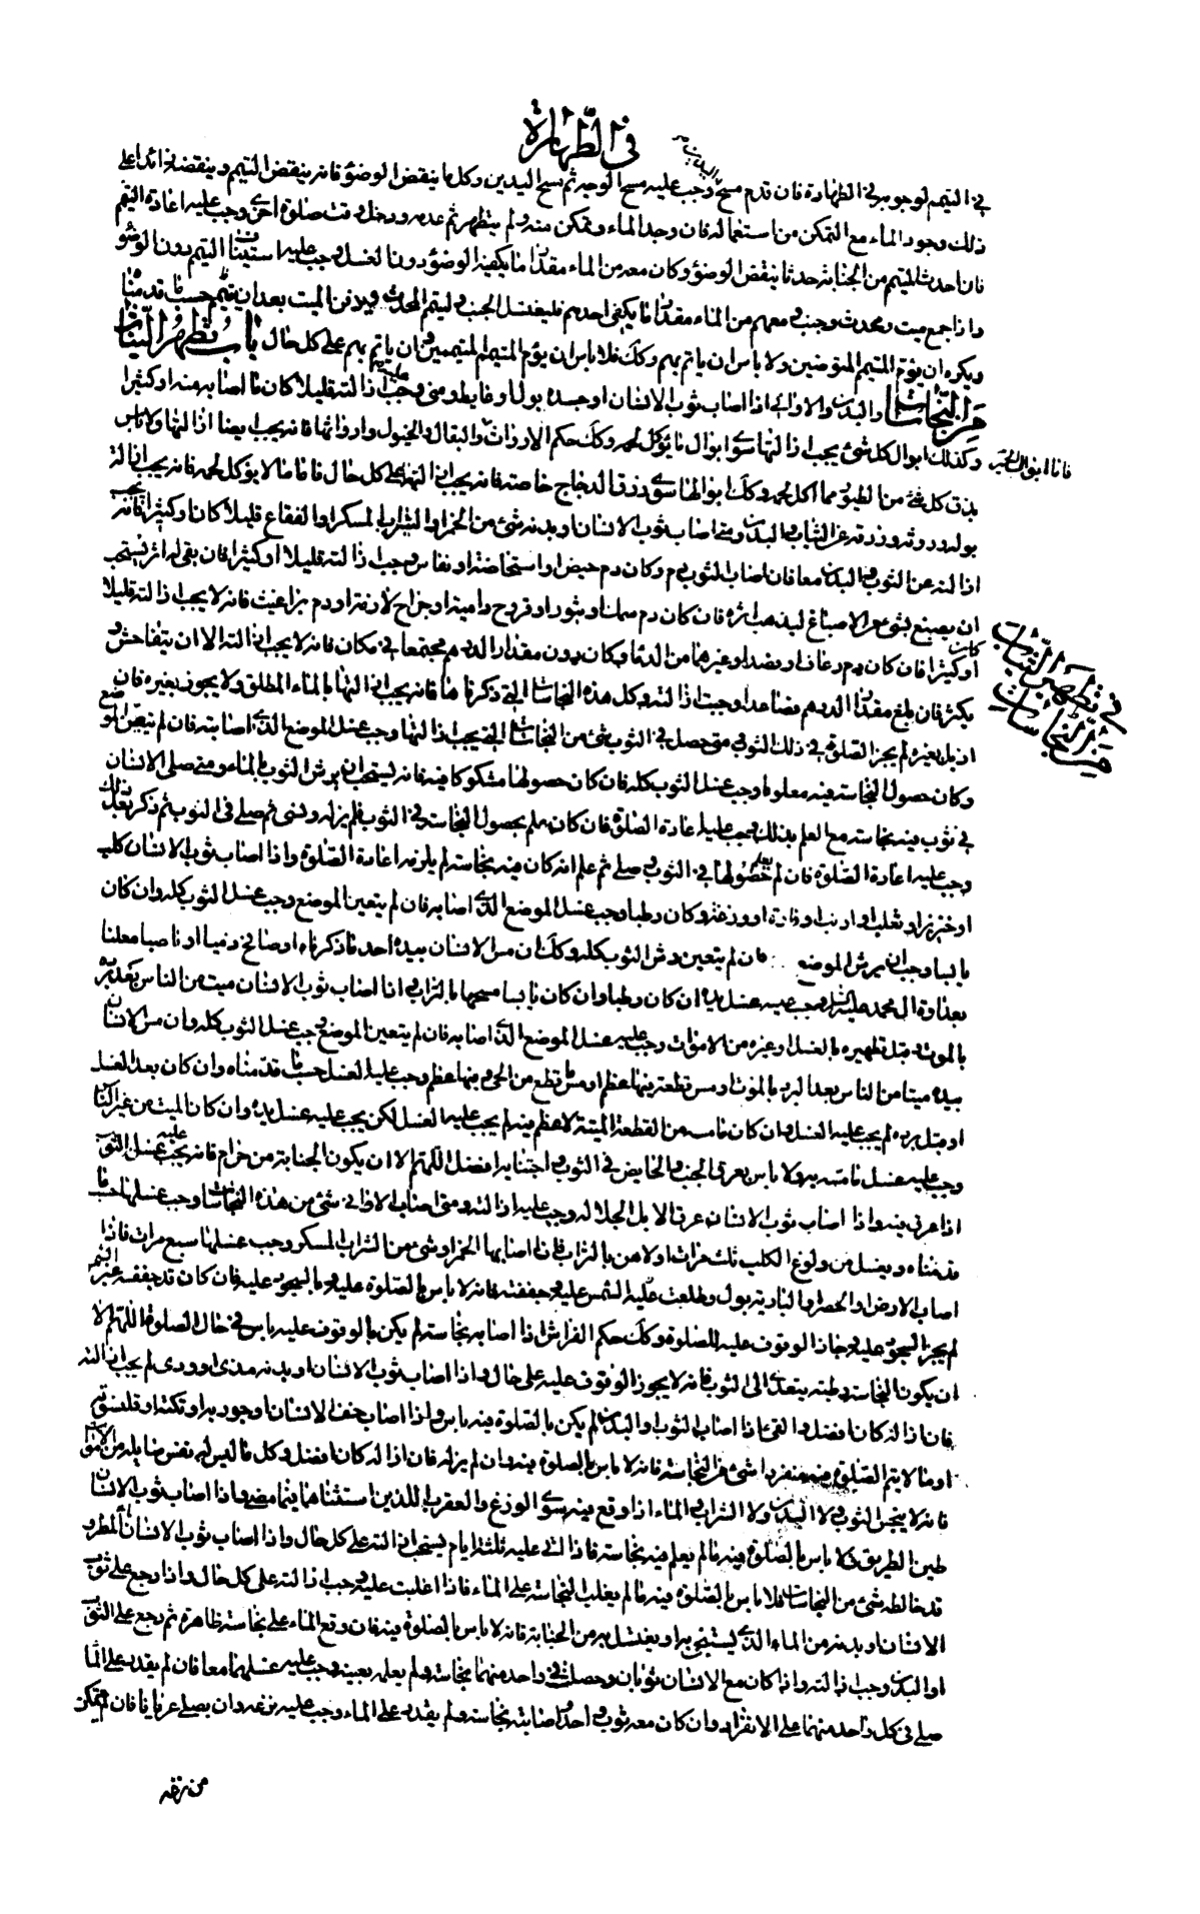 في الطهارة
في التيمم لوجوبه في الطهارة فان قدم مسح وجب عليه مسح الوجه ثم مسح اليدين وكل ما ينقض الوضوء فانه ينقض التيمم وينقضه زائدا على
ذلك وجود الماء مع التمكن من استعماله فان وجد الماء وتمكن منه ولم يتطهر ثم عدمه ودخل وقت صلوة اخرى وجب عليه اعادة التيمم
فان احدث المتيمم من الجنابة حدثا ينقض الوضوء وكان معه من الماء مقدار ما يكفيه الوضوء دون الغسل وجب عليه استيناف التيمم دون الوضوء
واذا اجمع ميت ومحدث وجنب ومعهم من الماء مقدار ما يكفي احدهم فليغتسل الجنب وليتيم المحدث ويدفن الميت بعد ان يتيمم حسب ما قدمناه
ويكره ان يؤم المتيمم المتوضئين ولا باس ان ياتم بهم وكك فلا باس ان يؤم المتيمم المتيممين وان ياتم بهم على كل حال باب تطهير الثياب
من النجاسات والبدن والاواني اذا اصاب ثوب الانسان او جسده بول او غايط او منى وجب عليه ازالته قليلا كان ما اصابه منه او كثيرا
وكذلك ابوال كل شئ يجب ازالتها سوى ابوال ما يؤكل لحمه وكك حكم الارواث والبغال والخيول وارواثها فانه يجب ايضا ازالتها ولا باس
بذرق كل شئ من الطيور مما اكل لحمه وكك ابوالها سوى ذرق الدجاج خاصة فانه يجب ازالتها على كل حال فاما ما لا يؤكل لحمه فانه يجب ازالة
بوله وروثه وذرقه عن الثياب والبدن ومتى اصاب ثوب الانسان او بدنه شئ من الخمر او الشراب المسكر او الفقاع قليلا كان او كثيرا فانه يجب
ازالته عن الثوب والبدن معا فان اصاب الثوب دم وكان دم حيض او استحاضة او نفاس وجب ازالته قليلا او كثيرا فان بقي له اثر يستحب
ان يصبغ بشئ من الاصباغ ليذهب اثره فان كان دم سمك او بثور او قروح دامية او جراح لازمة او دم براغيث فانه لا يجب ازالته قليلا
كان او كثيرا فان كان دم رعاف او فصد او غيرهما من الدماء وكان دون مقدار الدرهم مجتمعا في مكان فانه لا يجب ازالته الا ان يتفاحش و
يكثر فان بلغ مقدار الدرهم فصاعدا وجبت ازالته وكل هذه النجاسات التي ذكرناها فانه يجب ازالتها بالماء المطلق ولا يجوز بغيره فان
ازيل بغيره لم يجز الصلوة في ذلك الثوب ومتى حصل في الثوب شئ من النجاسات التي يجب ازالتها وجب غسل الموضع الذي اصابته فان لم يتعين الموضع
وكان حصول النجاسة فيه معلوما وجب غسل الثوب كله فان كان حصولها مشكوكا فيه فانه يستحب ان يرش الثوب بالماء ومتى صلى الانسان
في ثوب فيه نجاسة مع العلم بذلك وجب عليه اعادة الصلوة فان كان علم بحصول النجاسة في الثوب فلم يزله ونسى ثم صلى في الثوب ثم ذكر بعد ذلك
وجب عليه اعادة الصلوة فان لم يعلم حصولها في الثوب وصلى ثم علم انه كان فيه نجاسة لم يلزمه اعادة الصلوة واذا اصاب ثوب الانسان كلب
او خنزير او ثعلب او ارنب او فارة او وزغة وكان رطبا وجب غسل الموضع الذي اصابه فان لم يتعين الموضع وجب غسل الثوب كله وان كان
يابسا وجب ان يرش الموضع فان لم يتعين رش الثوب كله وكك ان مس الانسان بيده احد ما ذكرناه او صافح ذميا او ناصبا معلنا
بعداوة ال محمد عليهم السلام وجب عليه غسل يده ان كان رطبا وان كان يابسا مسحها بالتراب واذا اصاب ثوب الانسان ميت من الناس بعد برده
بالموت وقبل تطهيره بالغسل او غيره من الاموات وجب عليه غسل الموضع الذي اصابه فان لم يتعين الموضع وجب غسل الثوب كله وان مس الانسان
بيده ميتا من الناس بعد البرد بالموت او مس قطعة فيها عظم او مس ما قطع من الحي وفيها عظم وجب عليه الغسل حسب ما قدمناه وان كان بعد الغسل
او قبل برده لم يجب عليه الغسل وان كان ما مسه من القطعة الميتة لا عظم فيه لم يجب عليه الغسل لكن يجب عليه غسل يده وان كان الميت من غير الناس
وجب عليه غسل ما مسه به ولا باس بعرق الجنب والحايض في الثوب واجتنابه افضل اللهم الا ان يكون الجنابة من حرام فانه يجب عليه غسل الثوب
اذا عرق فيه واذا اصاب ثوب الانسان عرق الابل الجلالة وجب عليه ازالته ومتى اصاب الاواني شئ من هذه النجاسات وجب غسلها حسب ما
قدمناه ويغسل من ولوغ الكلب ثلث مرات اولاهن بالتراب فاذا اصابها الخمر او شئ من الشراب المسكر وجب غسلها سبع مرات فاذا
اصاب الارض او الحصر او البارية بول وطلعت عليه الشمس وجففته فانه لا باس بالصلوة عليه وبالسجود عليه فان كان قد جففته غير الشمس
لم يجز السجود عليه وجاز الوقوف عليه للصلوة وكك حكم الفراش اذا اصابه نجاسة لم يكن بالوقوف عليه باس في حال الصلوة اللهم الا
ان يكون النجاسة رطبة يتعدى الى الثوب فانه لا يجوز الوقوف عليه على حال واذا اصاب ثوب الانسان او بدنه مذى او وذى لم يجب ازالته
فان ازاله كان افضل والقئ اذا اصاب الثوب او البدن لم يكن بالصلوة فيه باس واذا اصاب خف الانسان او جوربه او تكته او قلنسوته
او ما لا يتم الصلوة فيه منفردا شئ من النجاسة فانه لا باس بالصلوة فيه وان لم يزله فان ازاله كان افضل وكل ما ليس له نفس سايلة من الاموات
فانه لا ينجس الثوب ولا البدن ولا الشراب والماء اذا وقع فيه سوى الوزغ والعقرب اللذين استثناهما فيما مضى واذا اصاب ثوب الانسان
طين الطريق فلا باس بالصلوة فيه ما لم يعلم فيه نجاسة فاذا اتى عليه ثلثة ايام يستحب ازالته على كل حال واذا اصاب ثوب الانسان ماء المطر و
قد خالطه شئ من النجاسات فلا باس بالصلوة فيه ما لم يغلب النجاسة على الماء فاذا اغلبت عليه وجب ازالته على كل حال واذا رجع على ثوب
الانسان او بدنه من الماء الذي يستنجى به او يغتسل به من الجنابة فانه لا باس بالصلوة فيه فان وقع الماء على نجاسة ظاهرة ثم رجع على الثوب
او البدن وجب ازالته واذا كان مع الانسان ثوبان وحصلت في واحد منهما نجاسة ولم يعلمه بعينه وجب عليه غسلهما معا فان لم يقدر على الماء
صلى في كل واحد منهما على الانفراد وان كان معه ثوب واحد واصابته نجاسة ولم يقدر على الماء وجب عليه نزعه وان يصلى عريانا فان لم يتمكن
من نزعه
فاما ابوال الحمير
في تطهير الثياب
من النجاسات